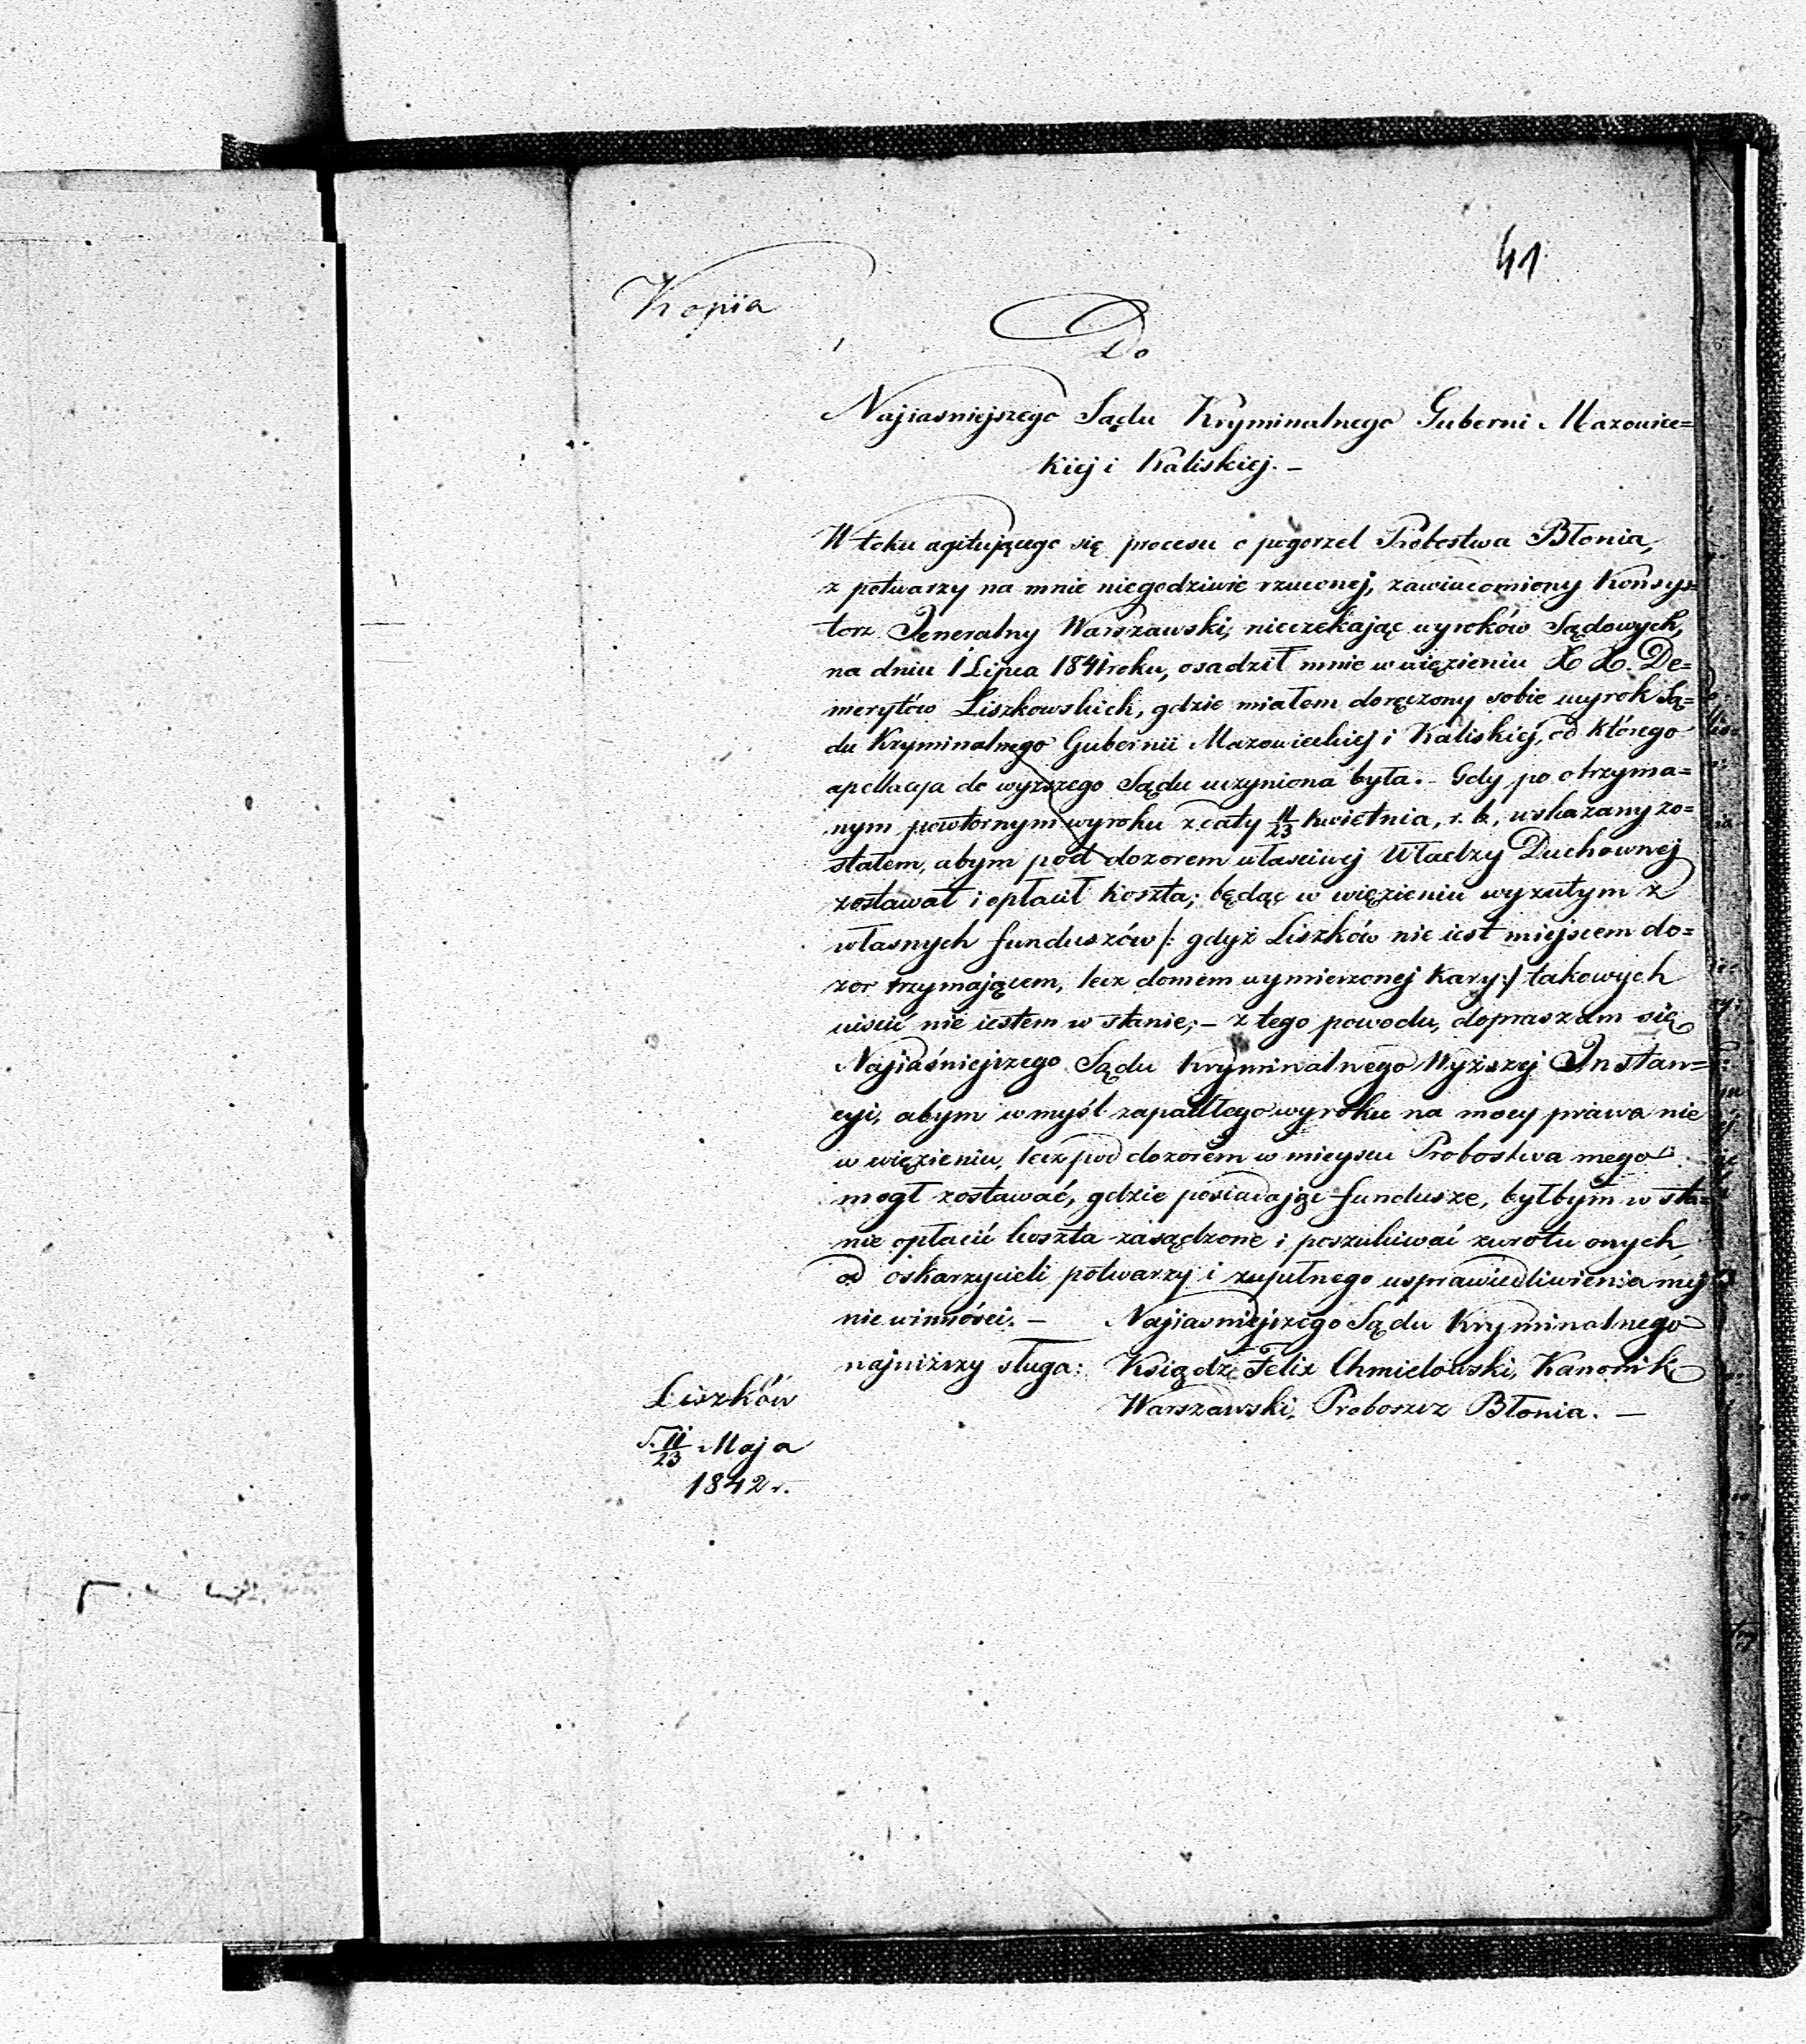 41
Kopiia
Do
Najiasniejszego Sądu Kryminalnego Guberni Mazowiec=
kiej i Kaliskiej. –
W toku agitującego się procesu o pogorzel Probostwa Błonia,
z potwarzy na mnie niegodziwie rzuconej, zawiadomiony Konsys=
torz Jeneralny Warszawski, nieczekając wyroków Sądowych,
na dniu 1 Lipca 1841 roku, osadził mnie w więzieniu X X. De=
merytów Liszkowskich, gdzie miałem doręczony sobie wyrok Są=
du Kryminalnego Gubernii Mazowieckiej i Kaliskiej, od którego
apellacja do wyższego Sądu uczyniona była. – Gdy po otrzyma=
nym powtornym wyroku z daty 11/23 kwietnia, r. b., wskazany zo=
stałem, abym pod dozorem właściwej Władzy Duchownej
zostawał i opłacił koszta; będąc w więzieniu wyzutym z
własnych funduszów /: gdyż Liszków nie iest miejscem do=
zor trzymającem, lecz domem wymierzonej kary :/ takowych
uiscić nie iestem w stanie; – z tego powodu, dopraszam się
Najiaśniejszego Sądu Kryminalnego Wyższej Instan=
cyi, abym w myśl zapadłego wyroku na mocy prawa nie
w więzieniu, lecz pod dozorem w mieyscu Probostwa mego
mogł zostawać, gdzie posiadając fundusze, byłbym w sta=
nie opłacić koszta zasądzone i poszukiwać zwrotu onych,
od oskarzycieli potwarzy i zupełnego usprawiedliwienia mej
niewinności. – Najiasniejszego Sądu Kryminalnego
najniższy sługa: Ksiądz Felix Chmielowski, Kanonik
Warszawski, Proboszcz Błonia. –
Liszków
d. 11/23 Maja
1842 r.